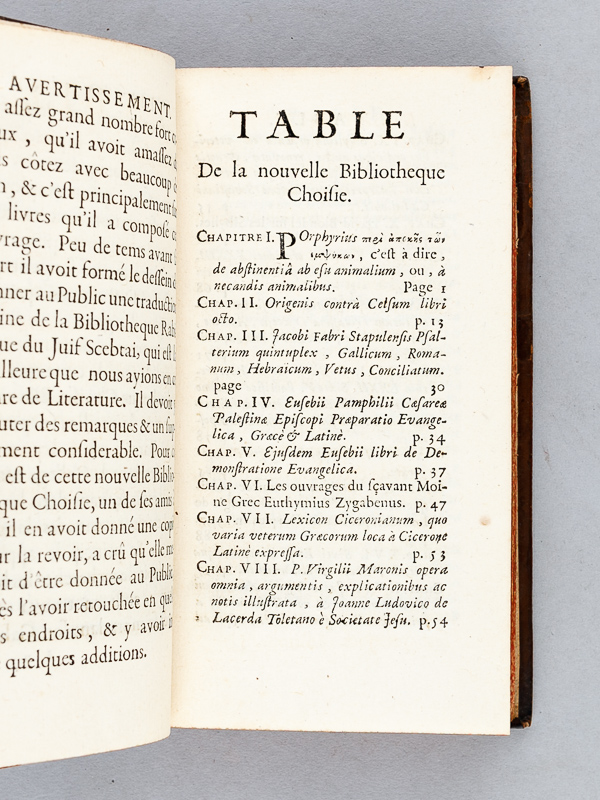 AVERTISSEMENT.
assez grand nombre fort
, qu'il avoit amassez
côtez avec beaucoup
, & c'est principalement
livres qu'il a compose
. Peu de tems avant
il avoit formé le dessein
au Public une traduction
de la Bibliotheque
du Juif Scebtai, qui est
que nous ayions en
de Literature. Il devoit
des remarques & un
considerable. Pour
est de cette nouvelle
Choisie, un de ses amis
il en avoit donné une
la revoir, a crû qu'elle
d'être donnée au Public
l'avoir retouchée en
endroits, & y avoir
quelques additions.
TABLE
De la nouvelle Bibliotheque
Choisie.
CHAPITRE I. POrphyrius περὶ ἀποχῆς τῶν
, c'est à dire,
de abstinentiâ ab esu animalium, ou, à
necandis animalibus. Page 1
CHAP. II. Origenis contrà Celsum libri
octo. p. 13
CHAP. III. Jacobi Fabri Stapulensis Psal-
terium quintuplex, Gallicum, Roma-
num, Hebraicum, Vetus, Conciliatum.
page 30
CHAP. IV. Eusebii Pamphilii Cæsareæ
Palestinæ Episcopi Præparatio Evange-
lica, Græcè & Latinè. p. 34
CHAP. V. Ejusdem Eusebii libri de De-
monstratione Evangelica. p. 37
CHAP. VI. Les ouvrages du sçavant Moi-
ne Grec Euthymius Zygabenus. p. 47
CHAP. VII. Lexicon Ciceronianum, quo
varia veterum Græcorum loca à Cicerone
Latinè expressa. p. 53
CHAP. VIII. P. Virgilii Maronis opera
omnia, argumentis, explicationibus ac
notis illustrata, à Joanne Ludovico de
Lacerda Toletano è Societate Jesu. p. 54